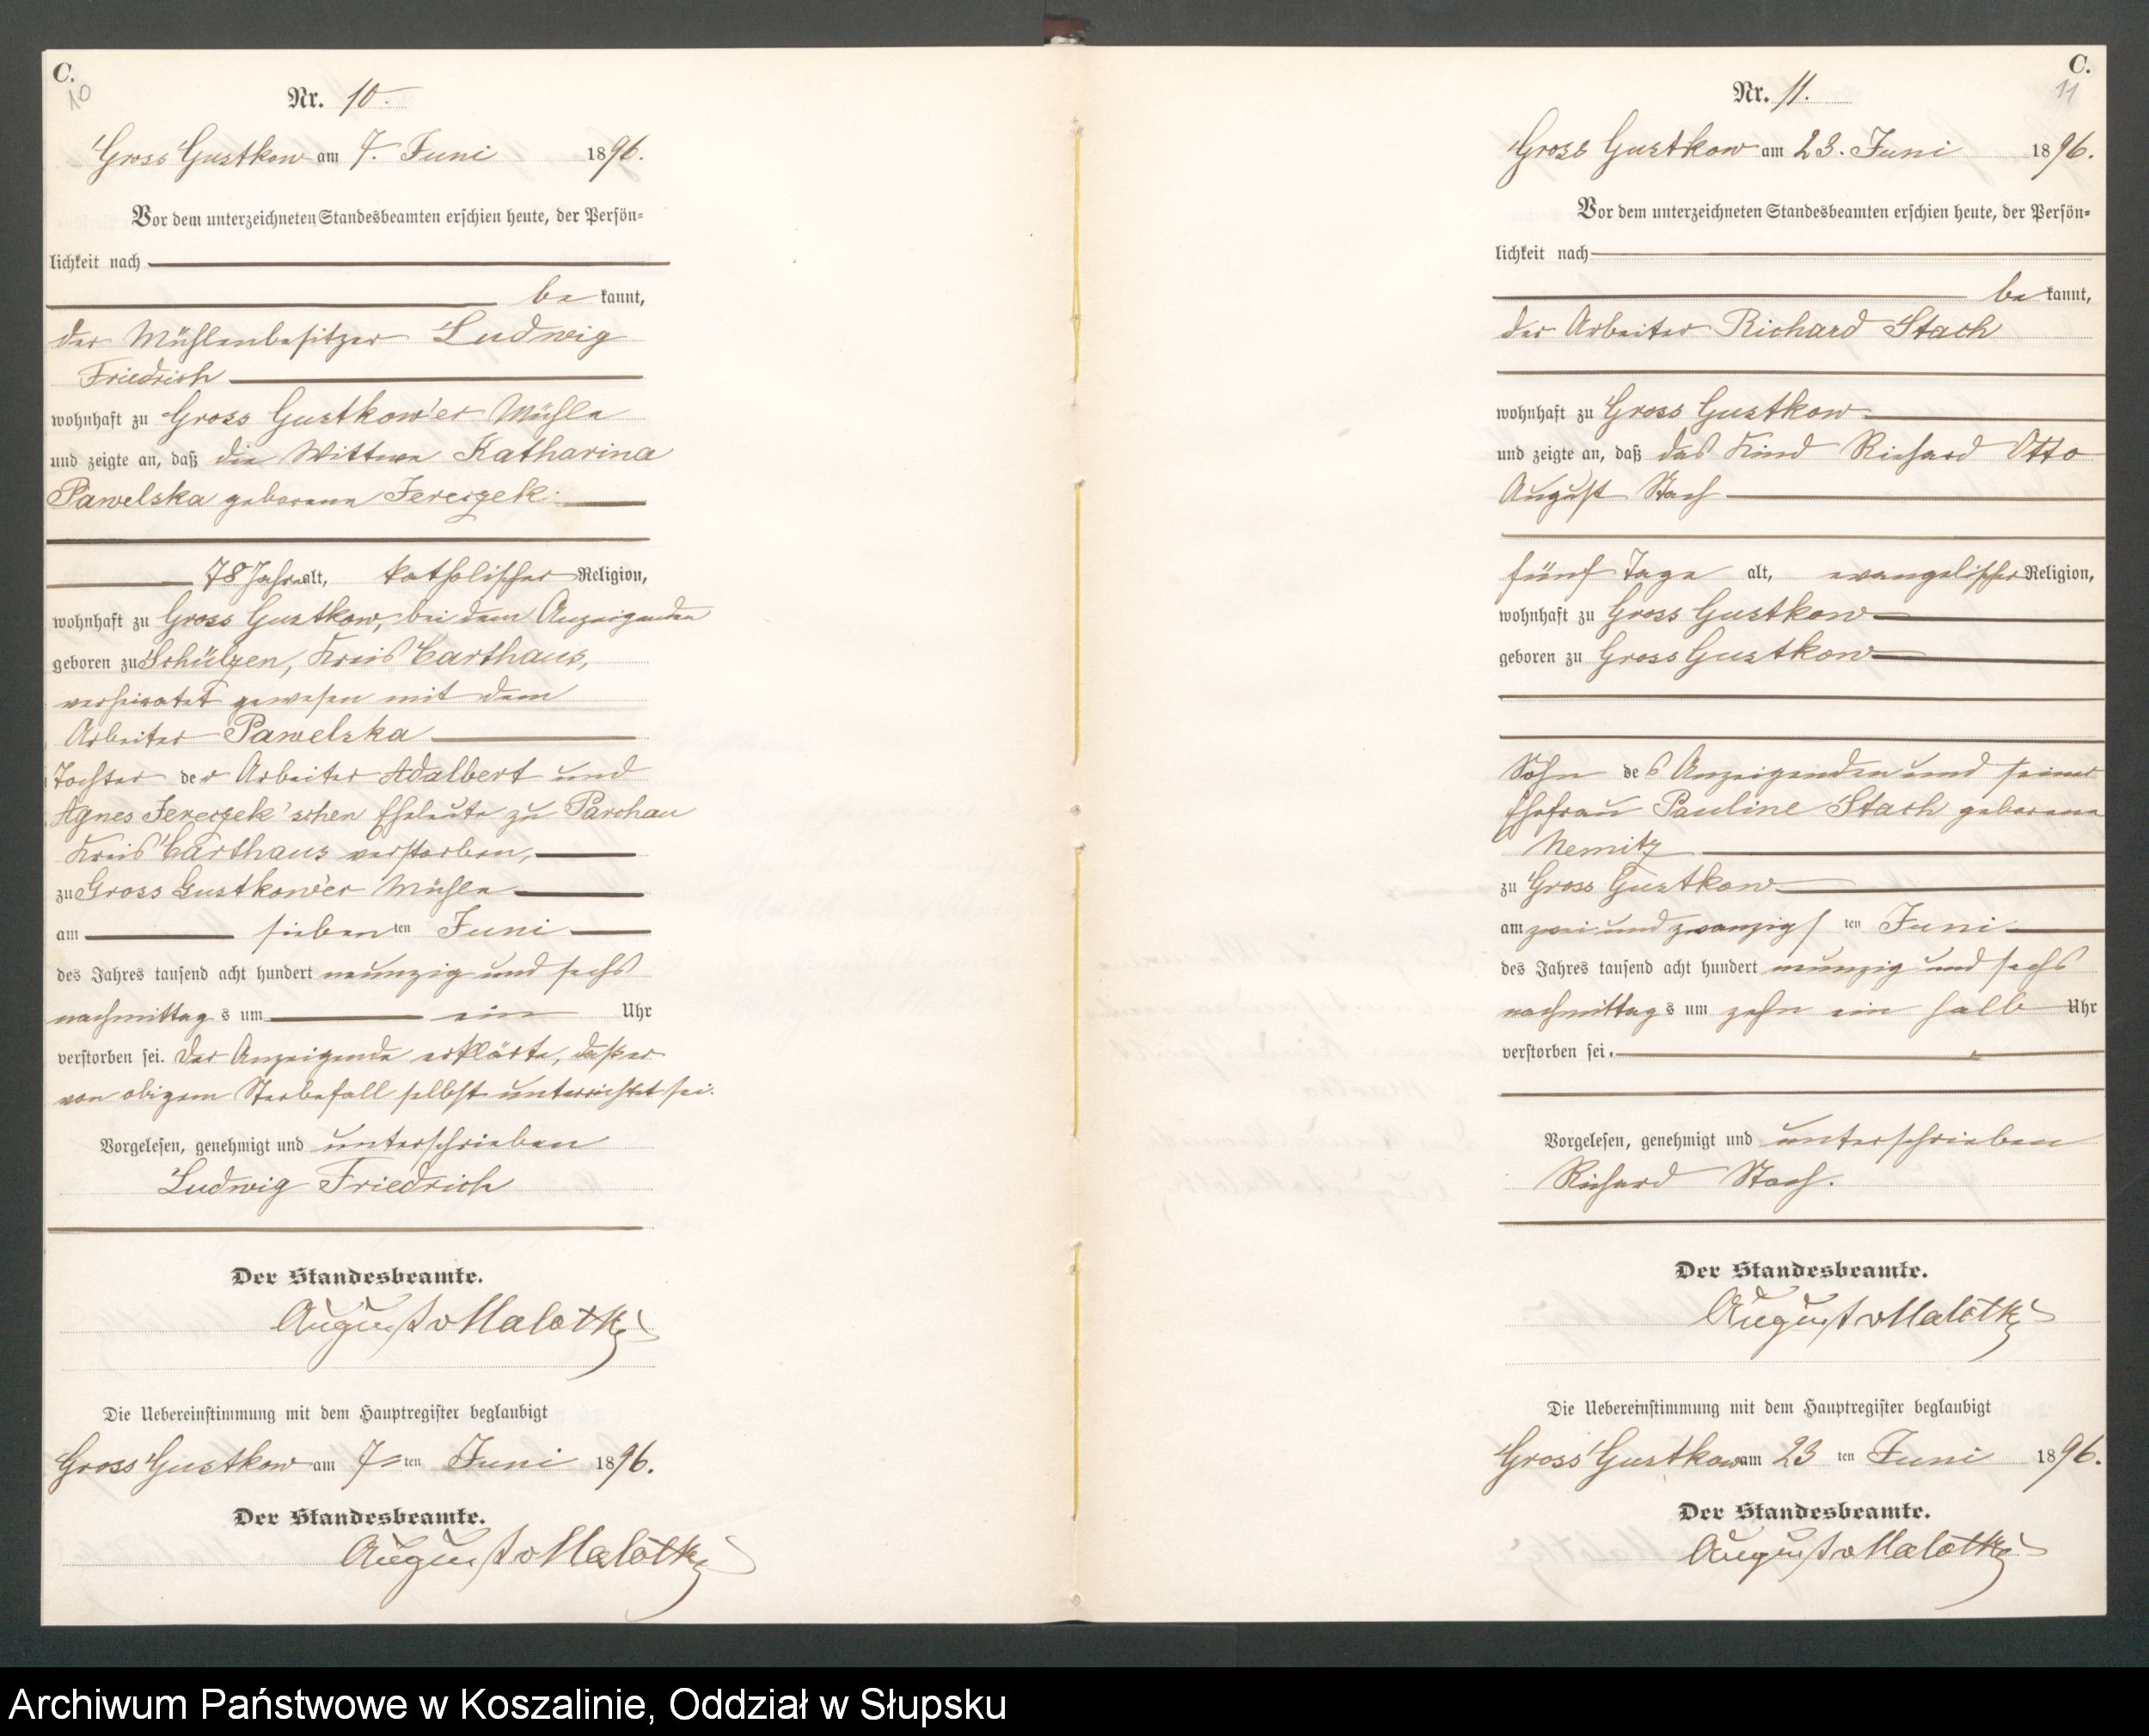 C.
10
Nr. 10.
Gross Gustkow am 7. Juni 1896.
Vor dem unterzeichneten Standesbeamten erschien heute, der Persön-
lichkeit nach
be kannt,
der Mühlenbesitzer Ludwig
Friedrich
wohnhaft zu Gross Gustkow'er Mühle
und zeigte an, daß die Wittwe Katharina
Pawelska geborene Jereczek
78 Jahre alt, katholischer Religion,
wohnhaft zu Gross Gustkow, bei dem Anzeigenden
geboren zu Schülzen, Kreis Carthaus,
verheiratet gewesen mit dem
Arbeiter Pawelska
Tochter der Arbeiter Adalbert und
Agnes Jereczek'schen Eheleute zu Parchau
Kreis Carthaus verstorben,
zu Gross Gustkow'er Mühle
am sieben ten Juni
des Jahres tausend acht hundert neunzig und sechs
nachmittag s um ein Uhr
verstorben sei. Der Anzeigende erklärte, daß er
von obigem Sterbefall selbst unterrichtet sei.
Vorgelesen, genehmigt und unterschrieben
Ludwig Friedrich
Der Standesbeamte.
August v Malotki
Die Uebereinstimmung mit dem Hauptregister beglaubigt
Gross Gustkow am 7 ten Juni 1896.
Der Standesbeamte.
August v Malotki
C.
11
Nr. 11.
Gross Gustkow am 23. Juni 1896.
Vor dem unterzeichneten Standesbeamten erschien heute, der Persön-
lichkeit nach
be kannt,
der Arbeiter Richard Stach
wohnhaft zu Gross Gustkow
und zeigte an, daß das Kind Richard Otto
August Stach
fünf Tage alt, evangelischer Religion,
wohnhaft zu Gross Gustkow
geboren zu Gross Gustkow
Sohn des Anzeigenden und seiner
Ehefrau Pauline Stach geborene
Nemitz
zu Gross Gustkow
am zwei und zwanzigs ten Juni
des Jahres tausend acht hundert neunzig und sechs
nachmittag s um zehn ein halb Uhr
verstorben sei.
Vorgelesen, genehmigt und unterschrieben
Richard Stach.
Der Standesbeamte.
August v Malotki
Die Uebereinstimmung mit dem Hauptregister beglaubigt
Gross Gustkow am 23 ten Juni 1896.
Der Standesbeamte.
August v Malotki
Archiwum Państwowe w Koszalinie, Oddział w Słupsku